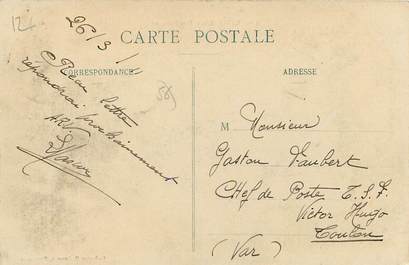 12
26/3/11
CARTE POSTALE
CORRESPONDANCE
ADRESSE
Reçu lettre
répondrai prochainement
M Monsieur
Gaston Vaubert
Chef de Poste T.S.F.
Victor Hugo
Toulon
(Var)